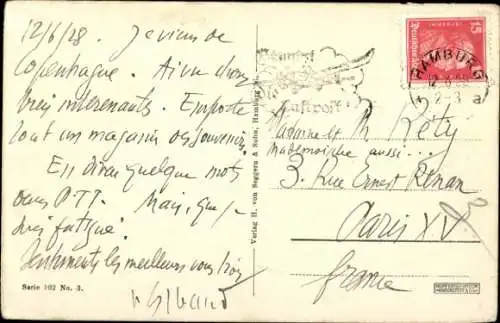 12/6/28. Je viens de
Copenhague. Ai vu choses
très intérenants. Emporte
tout un magasin de souvenirs.
En dirai quelque mots
dans P.T.T. Mais, que je
suis fatigué.
Sentiments les meilleurs
Serie 102 No. 3.
Verlag H. von Seggern & Sohn, Hamburg
15
HAMBURG
a
Luftpost
Madame et M. Réty
Mademoiselle aussi...
3. Rue Ernest Renan
Paris XV
France